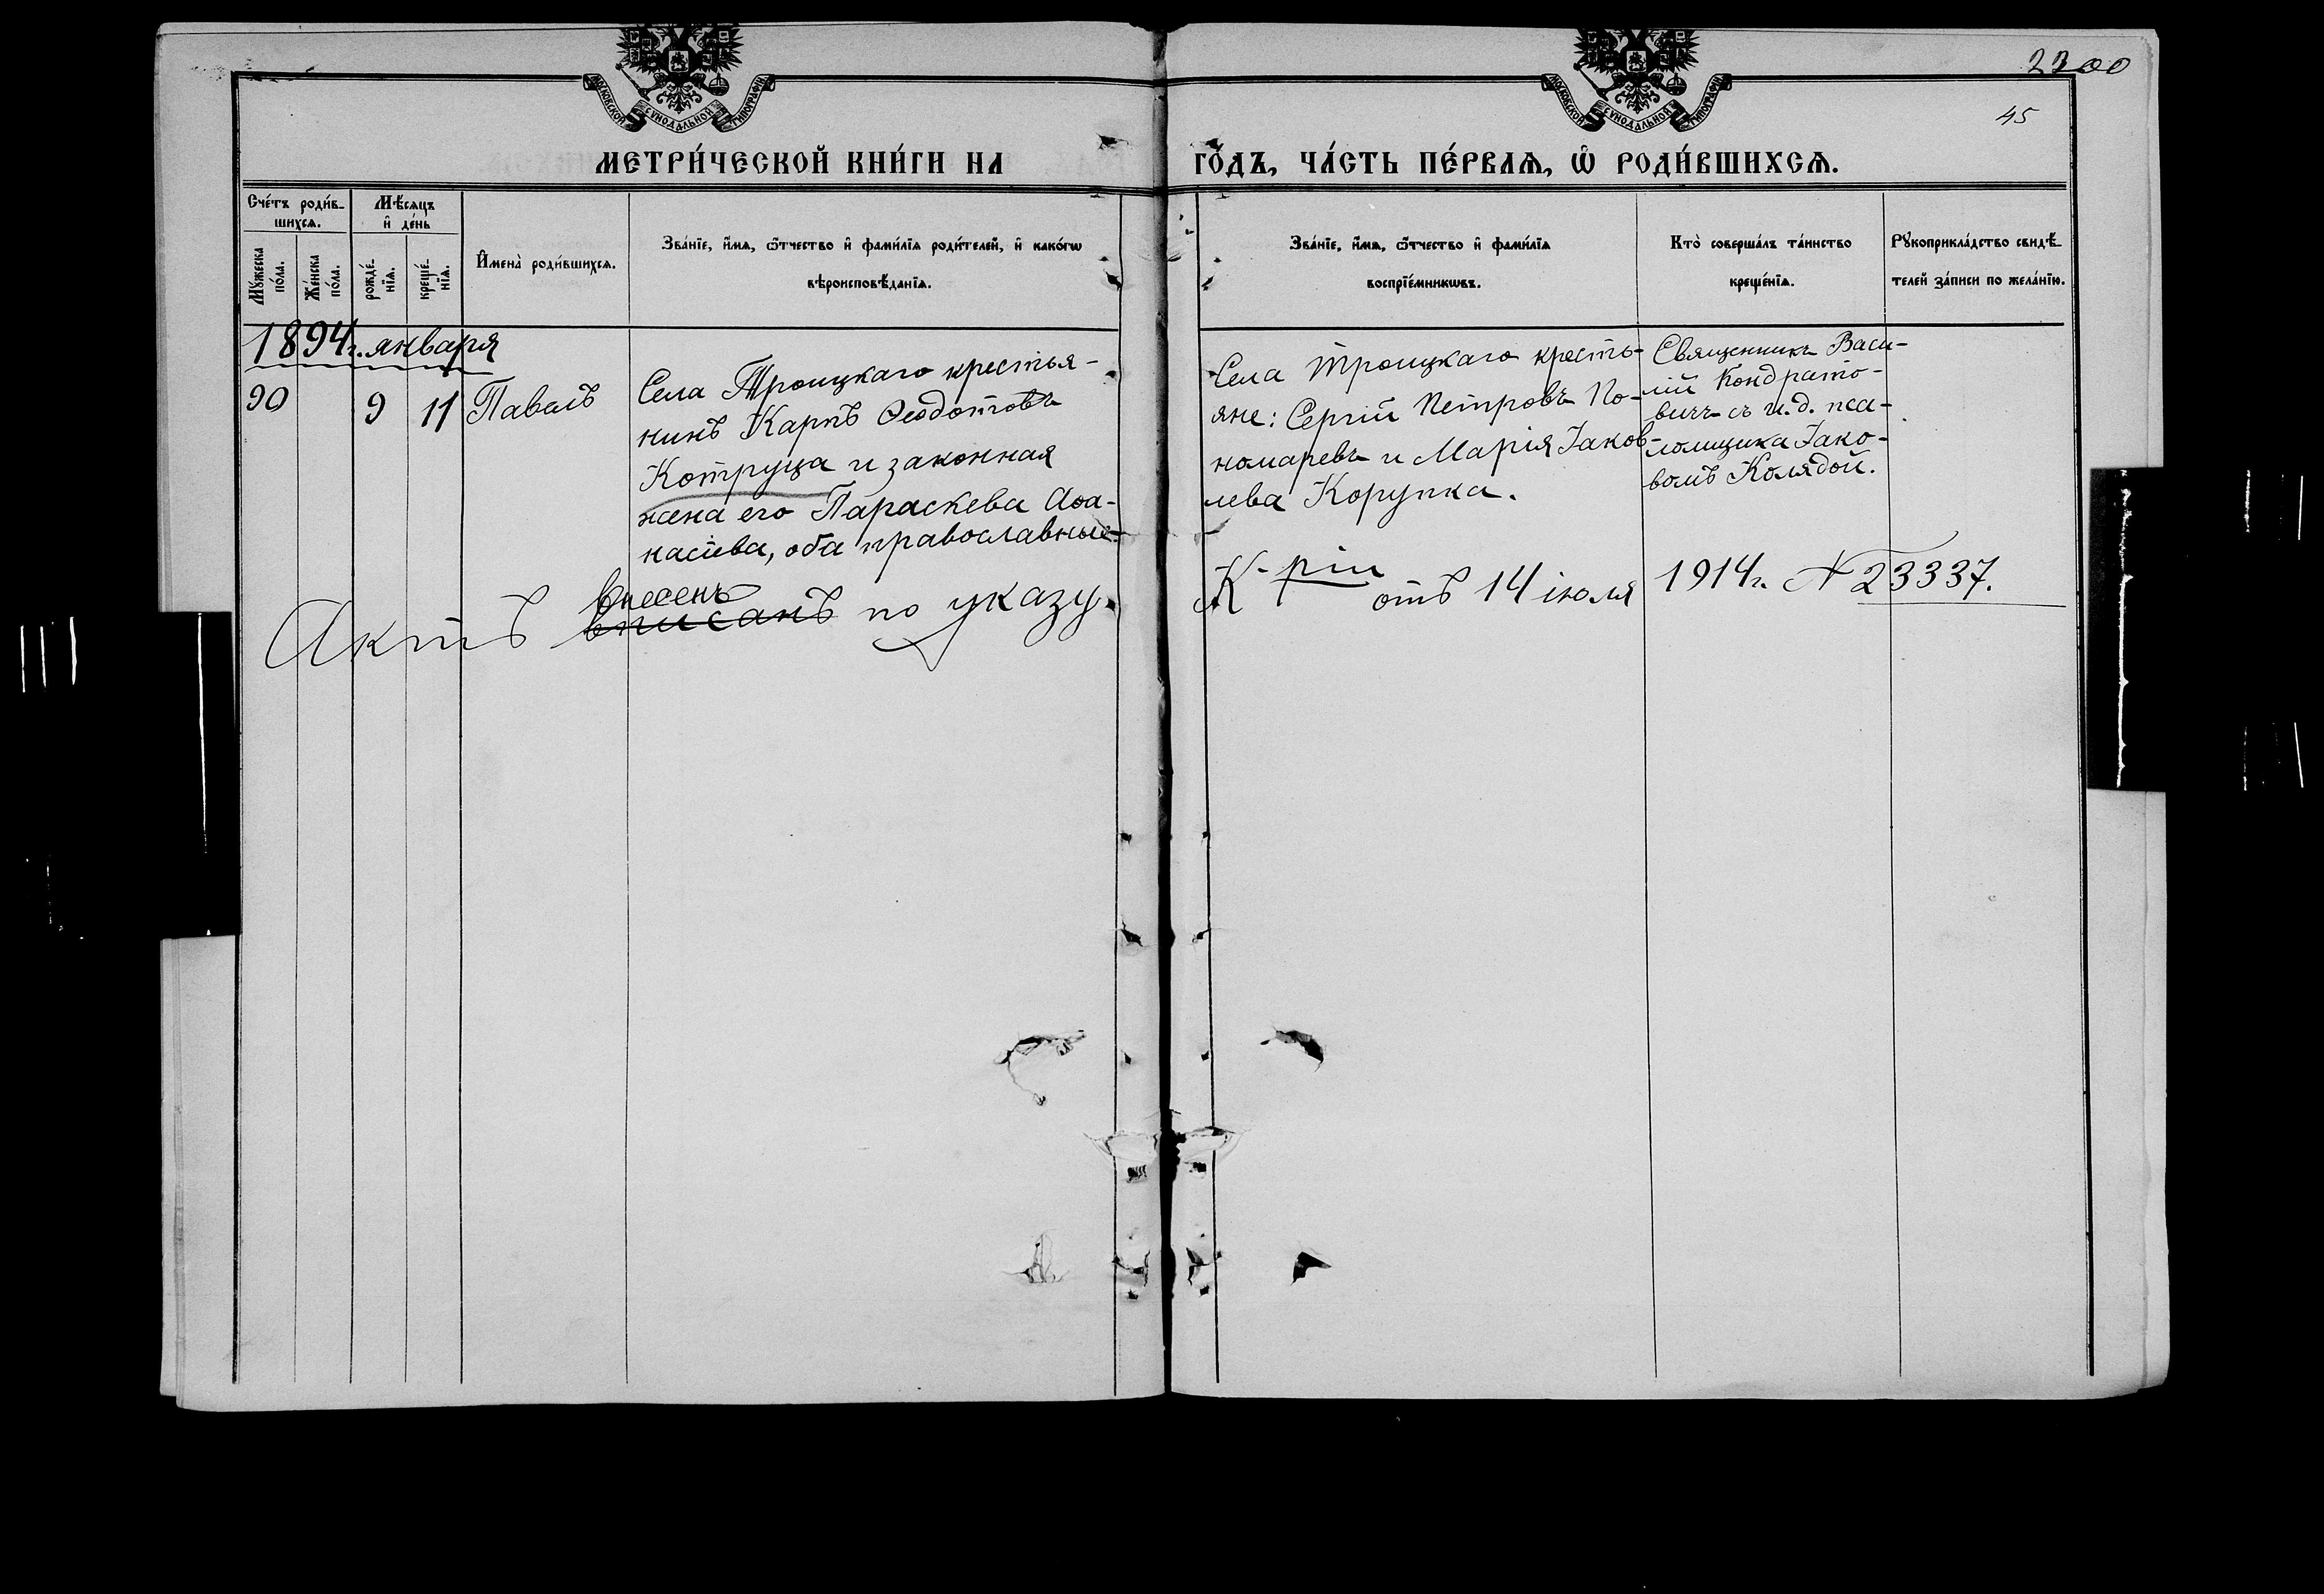 МОСКОВСКОЙ СУНОДАЛЬНОЙ ТИПОГРАФІИ
МОСКОВСКОЙ СУНОДАЛЬНОЙ ТИПОГРАФІИ
2200
45
МЕТРИ́ЧЕСКОЙ КНИ́ГИ НА
ГО́ДЪ, ЧА́СТЬ ПЕ́РВАѦ, Ѡ҆ РОДИ́ВШИХСѦ.
Сче́тъ роди́в-
шихсѧ.
Мꙋ́жеска
по́ла.
Же́нска
по́ла.
Мѣ́сѧцъ
и҆ де́нь
рожде́-
нїѧ.
креще́-
нїѧ.
И҆мена̀ роди́вшихсѧ.
Зва́нїе, и҆́мѧ, ѻ҆́тчество и҆ фами́лїѧ роди́телей, и҆ како́гѡ
вѣроисповѣ́данїѧ.
Зва́нїе, и҆́мѧ, ѻ҆́тчество и҆ фами́лїѧ
воспрїе́мникѡвъ.
Кто̀ соверша́лъ та́инство
креще́нїѧ.
Рꙋкоприкла́дство свидѣ́-
телей за́писи по жела́нїю.
1894г. января
90
9
11
Павелъ
Села Троицкаго крестья-
нинъ Карпъ Ѳеодотовъ
Котруца и законная
жена его Параскева Аѳа-
насіева, оба православные.
Села Троицкаго кресть-
яне: Сергій Петровъ По-
номаревъ и Марія Іаков-
лева Корупка.
Священникъ Васи-
лій Кондрато-
вичъ съ и.д. пса-
ломщика Іако-
вомъ Колядой.
внесенъ
Актъ вписанъ по указу
К-ріи отъ 14 іюля 1914г. № 23337.